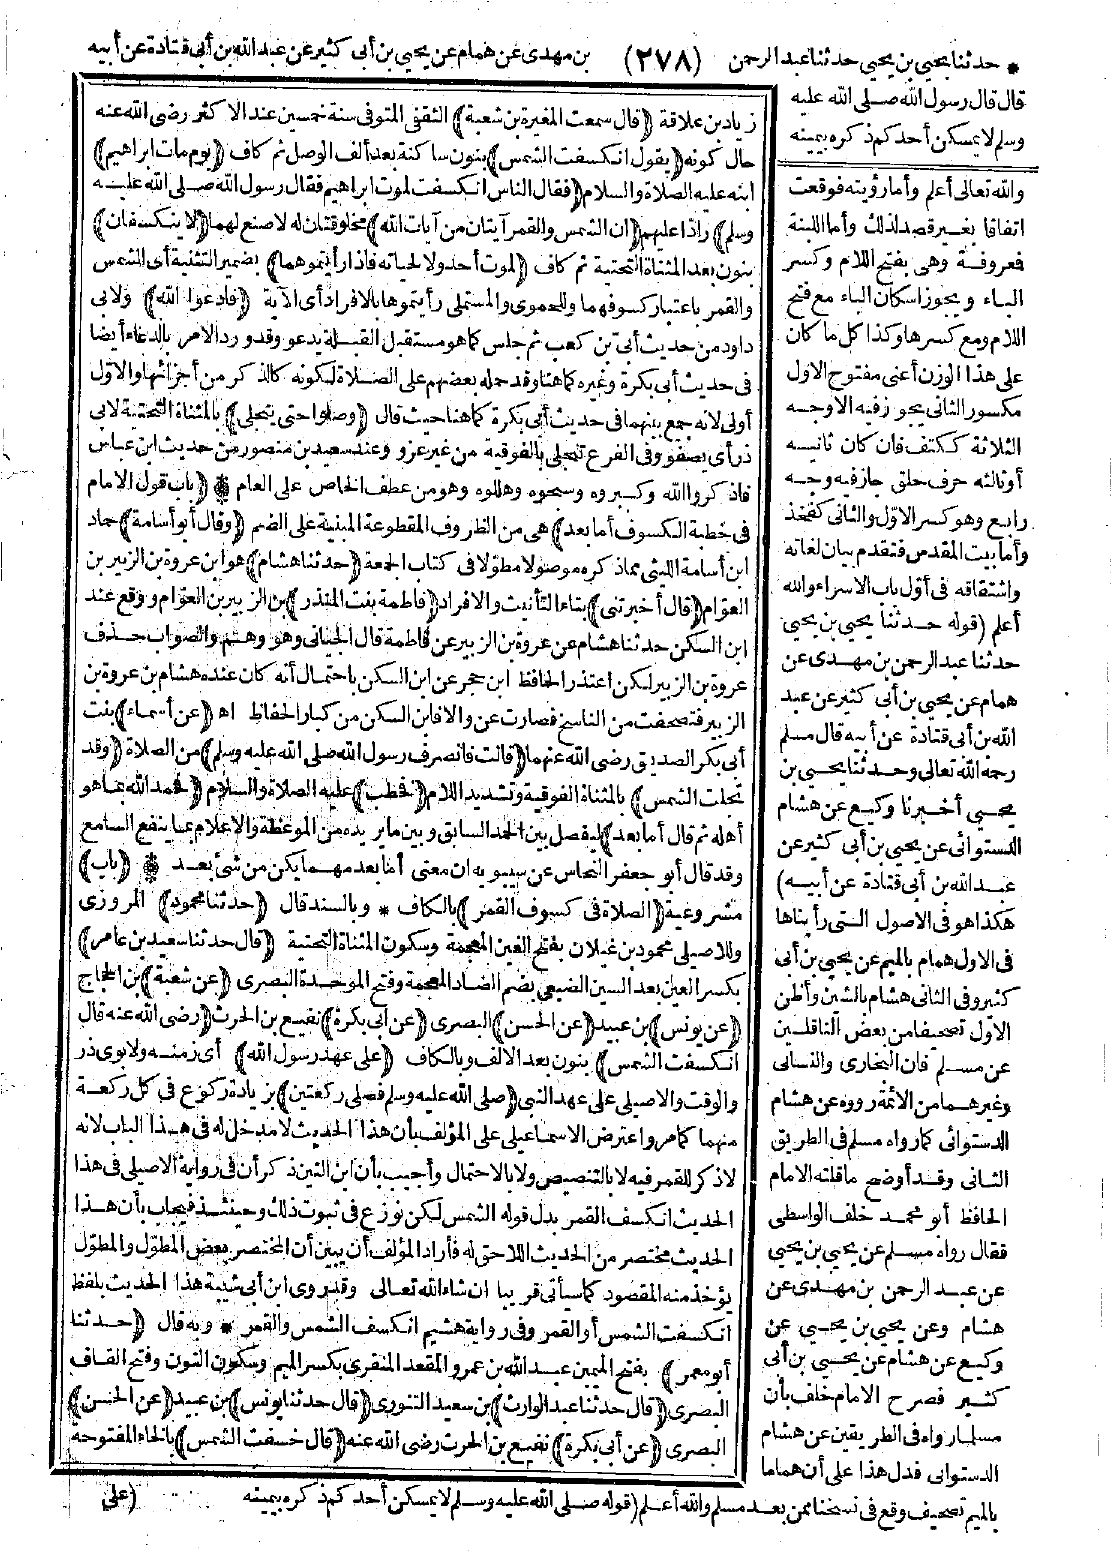 * حدثنا يحيى بن يحيى حدثنا عبد الرحمن (٢٧٨) بن مهدى عن همام عن يحيى بن أبى كثير عن عبد الله بن أبى قتادة عن أبيه
قال قال رسول الله صلى الله عليه
وسلم لا يمسكن أحدكم ذكره بيمينه
والله تعالى أعلم وأما رؤيته فوقعت
اتفاقا بغير قصد لذلك وأما اللبنة
فعروفة وهى بفتح اللام وكسر
الباء ويجوز اسكان الباء مع فتح
اللام ومع كسرها وكذا كل ما كان
على هذا الوزن أعنى مفتوح الاول
مكسور الثانى يجوز فيه الاوجه
الثلاثة ككتف فان كان ثانيه
أو ثالثه حرف حلق جاز فيه وجه
رابع وهو كسر الاول والثانى كفخذ
وأما بيت المقدس فتقدم بيان لغاته
واشتقاقه فى أول باب الاسراء والله
أعلم (قوله حدثنا يحيى بن يحيى
حدثنا عبد الرحمن بن مهدى عن
همام عن يحيى بن أبى كثير عن عبد
الله بن أبى قتادة عن أبيه قال مسلم
رحمه الله تعالى وحدثنا يحيى بن
يحيى أخبرنا وكيع عن هشام
الدستوائى عن يحيى بن أبى كثير عن
عبد الله بن أبى قتادة عن أبيه)
هكذا هو فى الاصول التى رأيناها
فى الاول همام بالميم عن يحيى بن أبى
كثير وفى الثانى هشام بالشين وأظن
الاول تصحيفا من بعض الناقلين
عن مسلم فان البخارى والنسائى
وغيرهما من الأئمة رووه عن هشام
الدستوائى كما رواه مسلم فى الطريق
الثانى وقد أوضح ما قلته الامام
الحافظ أبو محمد خلف الواسطى
فقال رواه مسلم عن يحيى بن يحيى
عن عبد الرحمن بن مهدى عن
هشام وعن يحيى بن يحيى عن
وكيع عن هشام عن يحيى بن أبى
كثير فصرح الامام خلف بأن
مسلما رواه فى الطريقين عن هشام
الدستوائى فدل هذا على أن هماما
بالميم تصحيف وقع فى نسخنا ممن بعد مسلم والله أعلم (قوله صلى الله عليه وسلم لا يمسكن أحدكم ذكره بيمينه (على
زياد بن علاقة (قال سمعت المغيرة بن شعبة) الثقفى المتوفى سنة خمسين عند الاكثر رضى الله عنه
حال كونه (يقول انكسفت الشمس) بنون ساكنة بعد ألف الوصل ثم كاف (يوم مات ابراهيم)
ابنه عليه الصلاة والسلام (فقال الناس انكسفت لموت ابراهيم فقال رسول الله صلى الله عليه
وسلم) رادا عليهم (ان الشمس والقمر آيتان من آيات الله) مخلوقتان له لا صنع لهما (لا ينكسفان)
بنون بعد المثناة التحتية ثم كاف (لموت أحد ولا لحياته فاذا رأيتموهما) بضمير التثنية أى الشمس
والقمر باعتبار كسوفهما وللحموى والمستملى رأيتموها بالافراد أى الآية (فادعوا الله) ولابى
داود من حديث أبى بن كعب ثم جلس كما هو مستقبل القبلة يدعو وقد ورد الامر بالدعاء أيضا
فى حديث أبى بكرة وغيره كما هنا وقد حمله بعضهم على الصلاة لكونه كالذكر من أجزائها والاول
أولى لانه جمع بينهما فى حديث أبى بكرة كما هنا حيث قال (وصلوا حتى ينجلى) بالمثناة التحتية لابى
ذر أى يصفو وفى الفرع تنجلى بالفوقية من غير عزو وعند سعيد بن منصور من حديث ابن عباس
فاذكروا الله وكبروه وسبحوه وهللوه وهو من عطف الخاص على العام * (باب قول الامام
فى خطبة الكسوف أما بعد) هى من الظروف المقطوعة المبنية على الضم (وقال أبو أسامة) حماد
ابن أسامة الليثى مما ذكره موصولا مطولا فى كتاب الجمعة (حدثنا هشام) هو ابن عروة بن الزبير بن
العوام (قال أخبرتنى) بتاء التأنيث والافراد (فاطمة بنت المنذر) بن الزبير بن العوام ووقع عند
ابن السكن حدثنا هشام عن عروة بن الزبير عن فاطمة قال الجيانى وهو وهم والصواب حذف
عروة بن الزبير لكن اعتذر الحافظ ابن حجر عن ابن السكن باحتمال أنه كان عنده هشام بن عروة بن
الزبير فتصحفت من الناسخ فصارت عن والا فابن السكن من كبار الحفاظ اه (عن أسماء) بنت
أبى بكر الصديق رضى الله عنهما (قالت فانصرف رسول الله صلى الله عليه وسلم) من الصلاة (وقد
تجلت الشمس) بالمثناة الفوقية وتشديد اللام (فخطب) عليه الصلاة والسلام (فحمد الله بما هو
أهله ثم قال أما بعد) ليفصل بين الحمد السابق وبين ما يريده من الموعظة والاعلام بما ينفع السامع
وقد قال أبو جعفر النحاس عن سيبويه ان معنى أما بعد مهما يكن من شئ بعد * (باب)
مشروعية (الصلاة فى كسوف القمر) بالكاف * وبالسند قال (حدثنا محمود) المروزى
وللاصيلى محمود بن غيلان بفتح الغين المعجمة وسكون المثناة التحتية (قال حدثنا سعيد بن عامر)
بكسر العين بعد السين الضبعى بضم الضاد المعجمة وفتح الموحدة البصرى (عن شعبة) بن الحجاج
(عن يونس) بن عبيد (عن الحسن) البصرى (عن أبى بكرة) نفيع بن الحرث (رضى الله عنه قال
انكسفت الشمس) بنون بعد الالف وبالكاف (على عهد رسول الله) أى زمنه ولابوى ذر
والوقت والاصيلى على عهد النبى (صلى الله عليه وسلم فصلى ركعتين) بزيادة ركوع فى كل ركعة
منهما كما مر واعترض الاسماعيلى على المؤلف بأن هذا الحديث لا مدخل له فى هذا الباب لانه
لا ذكر للقمر فيه لا بالتنصيص ولا بالاحتمال وأجيب بأن ابن التين ذكر أن فى رواية الاصيلى فى هذا
الحديث انكسف القمر بدل قوله الشمس لكن نوزع فى ثبوت ذلك وحينئذ فيجاب بأن هذا
الحديث مختصر من الحديث اللاحق له فأراد المؤلف أن يبين أن المختصر بعض المطول والمطول
يؤخذ منه المقصود كما سيأتى قريبا ان شاء الله تعالى وقد روى ابن أبى شيبة هذا الحديث بلفظ
انكسفت الشمس أو القمر وفى رواية هشيم انكسف الشمس والقمر * وبه قال (حدثنا
أبو معمر) بفتح الميمين عبد الله بن عمرو المقعد المنقرى بكسر الميم وسكون النون وفتح القاف
البصرى (قال حدثنا عبد الوارث) بن سعيد التنورى (قال حدثنا يونس) بن عبيد (عن الحسن)
البصرى (عن أبى بكرة) نفيع بن الحرث رضى الله عنه (قال خسفت الشمس) بالخاء المفتوحة